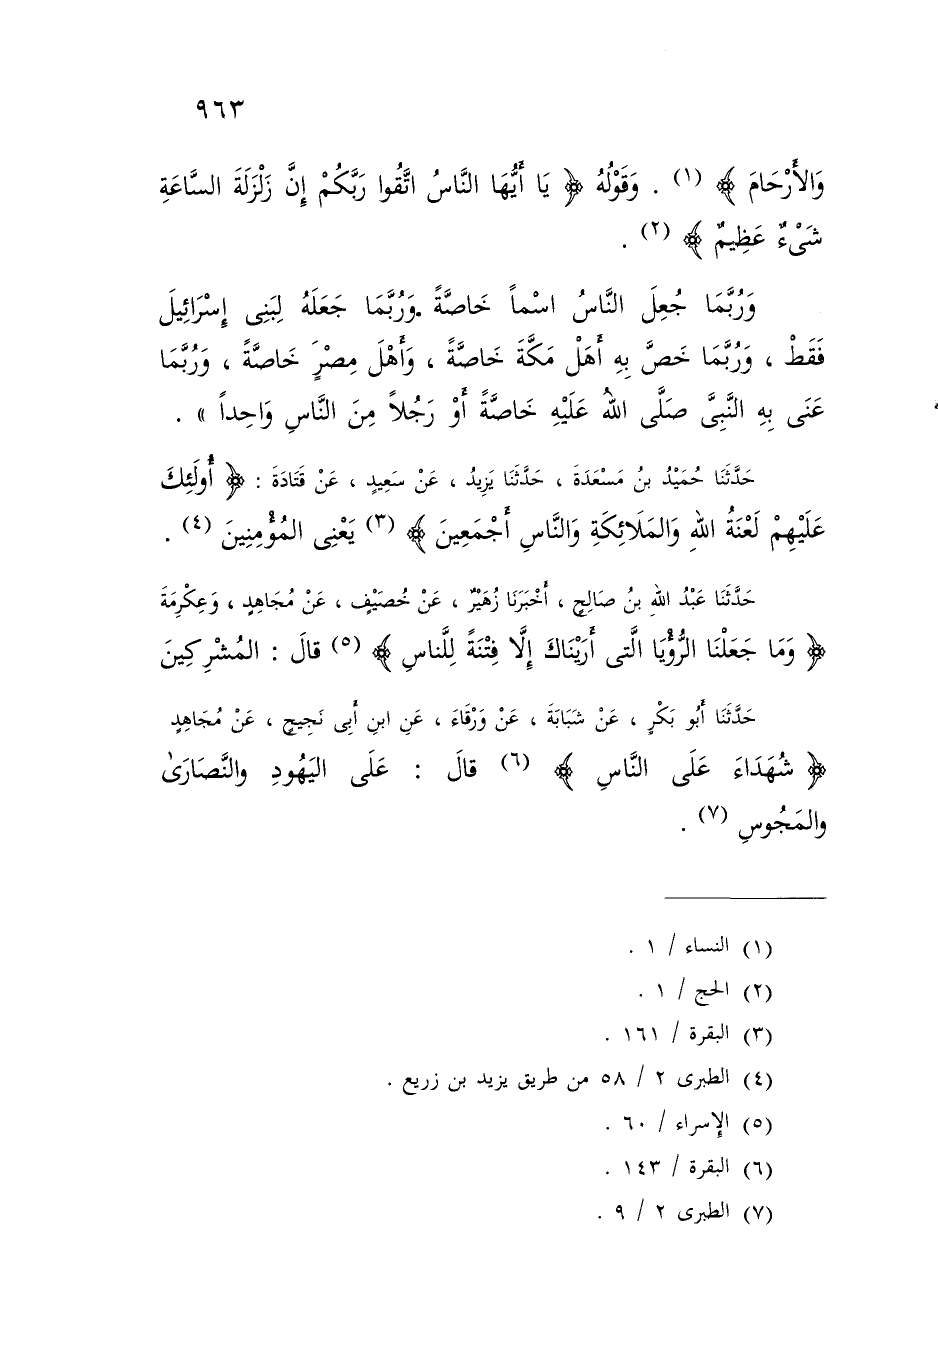 ٩٦٣
وَالأَرْحَامَ ﴾ (١) . وَقَوْلُهُ ﴿ يَا أَيُّهَا النَّاسُ اتَّقُوا رَبَّكُمْ إِنَّ زَلْزَلَةَ السَّاعَةِ
شَىْءٌ عَظِيمٌ ﴾ (٢) .
وَرُبَّمَا جُعِلَ النَّاسُ اسْماً خَاصَّةً .وَرُبَّمَا جَعَلَهُ لِبَنِى إِسْرَائِيلَ
فَقَطْ ، وَرُبَّمَا خَصَّ بِهِ أَهَلْ مَكَّةَ خَاصَّةً ، وَأَهْلَ مِصْرَ خَاصَّةً ، وَرُبَّمَا
عَنَى بِهِ النَّبِىَّ صَلَّى اللهُ عَلَيْهِ خَاصَّةً أَوْ رَجُلاً مِنَ النَّاسِ وَاحِداً » .
حَدَّثَنَا حُمَيْدُ بنُ مَسْعَدَةَ ، حَدَّثَنَا يَزِيدُ ، عَنْ سَعِيدٍ ، عَنْ قَتَادَةَ : ﴿ أُولَئِكَ
عَلَيْهِمْ لَعْنَةُ اللهِ وَالمَلَائِكَةِ وَالنَّاسِ أَجْمَعِينَ ﴾ (٣) يَعْنِى المُؤْمِنِينَ (٤) .
حَدَّثَنَا عَبْدُ اللهِ بنُ صَالِحٍ ، أَخْبَرَنَا زُهَيْرٌ ، عَنْ خُصَيْفٍ ، عَنْ مُجَاهِدٍ ، وَعِكْرِمَةَ
﴿ وَمَا جَعَلْنَا الرُّؤْيَا الَّتى أَرَيْنَاكَ إِلَّا فِتْنَةً لِلَّناسِ ﴾ (٥) قالَ : المُشْرِكِينَ
حَدَّثَنَا أَبُو بَكْرٍ ، عَنْ شَبَابَةَ ، عَنْ وَرْقَاءَ ، عَنِ ابنِ أَبِى نَجِيحٍ ، عَنْ مُجَاهِدٍ
﴿ شُهَدَاءَ عَلَى النَّاسِ ﴾ (٦) قالَ : عَلَى اليَهُودِ والنَّصَارَىٰ
والمَجُوسِ (٧) .
(١) النساء / ١ .
(٢) الحج / ١ .
(٣) البقرة / ١٦١ .
(٤) الطبرى ٢ / ٥٨ من طريق يزيد بن زريع .
(٥) الإسراء / ٦٠ .
(٦) البقرة / ١٤٣ .
(٧) الطبرى ٢ / ٩ .